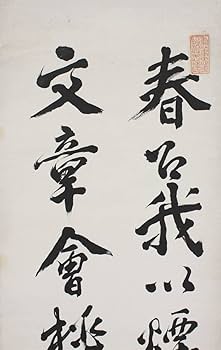 春召我以煙
文章會桃